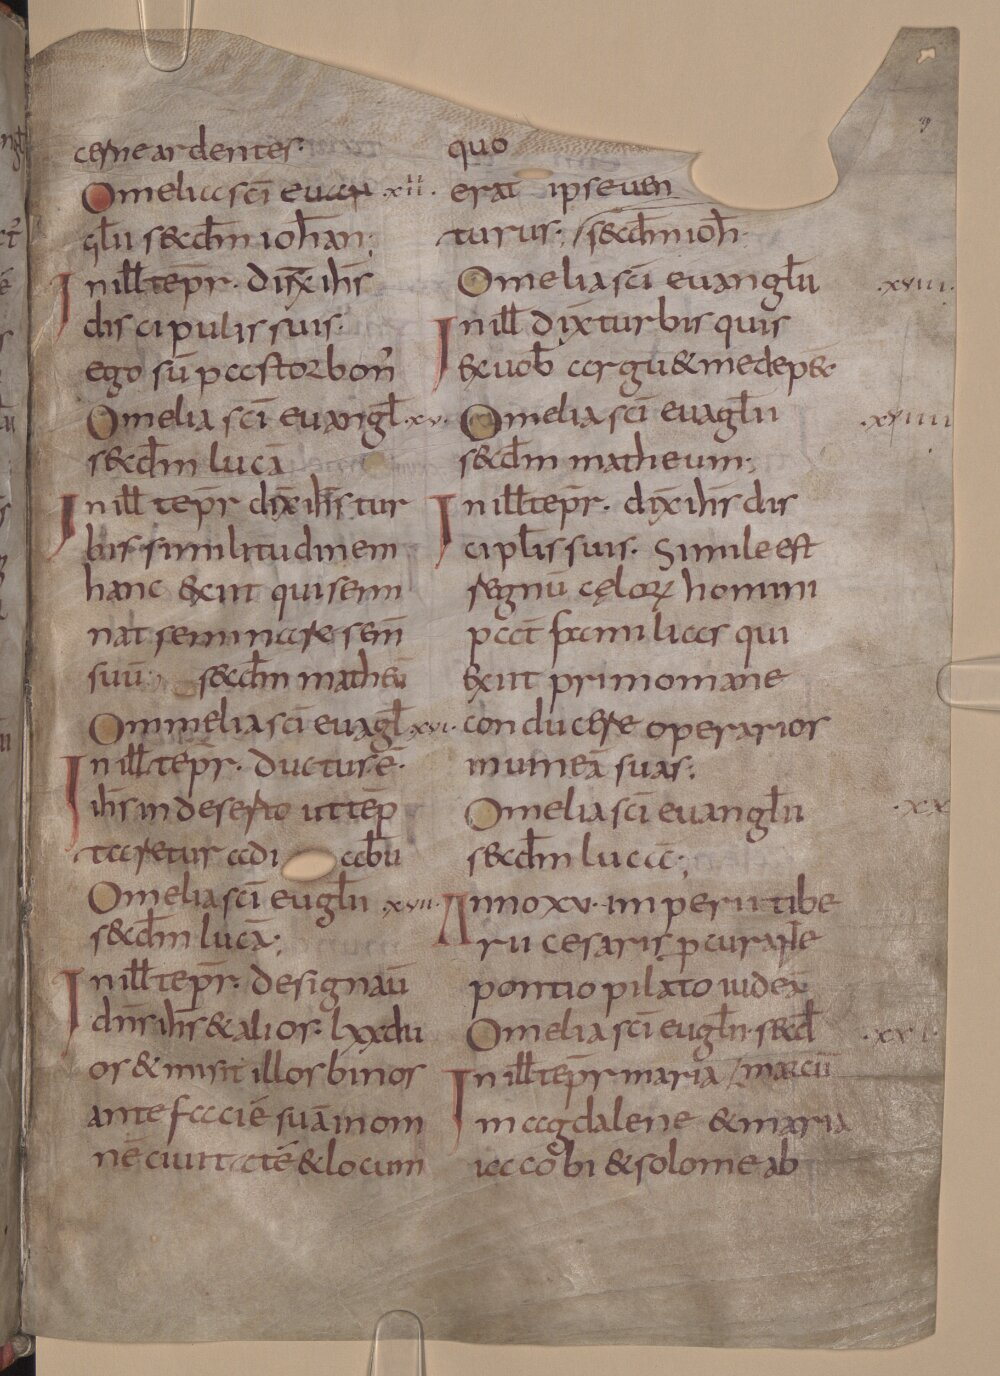 cerne ardentes·
Omelia sci euan ·xii·
głii secdm iohan;
Jn illł tepr· dixit ihs
discipulis suis·
ego sū pastor bon
Omelia sci euangł ·xv·
secdm lucā
Jn illł tepr dix ihs tur
bis similitudinem
hanc exiit qui semi
nat seminare sem
suū· secdm matheū
Ommelia sci euagł ·xvi·
Jn illł tepr· ductus ē·
ihs in deserto ut tep
taretur a di abłu
Omelia sci eugłii ·xvii·
secdm lucā;
Jn illł tepr· designaū
dns ihs & alios· lxxdu
os & misit illos binos
ante faciē suā in om
nē ciuitatē & locum
quo
erat ipse uen
turus; secdm ioh·
Omelia sci euangłii ·xviii·
Jn illł dix turbis quis
ex uob arguæ& me de pec
Omelia sci euagłii ·xviiii
secdm matheum;
Jn illł tepr· dix ihs dis
ciplis suis· Simile est
regnū cęlorꝝ homini
pat familias qui
exiit primo mane
conducere operarios
in uineā suas;
Omelia sci euangłii ·xx
secdm luca;
Anno xv· imperii tibe
rii cesaris pcurante
pontio pilato iudeā
Omelia sci eugłii· secd ·xxi·
Jn illł tepr maria /marcū
magdalene & maria
iacobi & solome ab